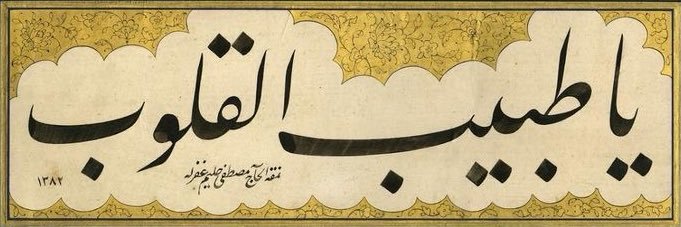 يا طبيب القلوب
نمقه الحاج مصطفى حليم غفر له
١٣٨٢